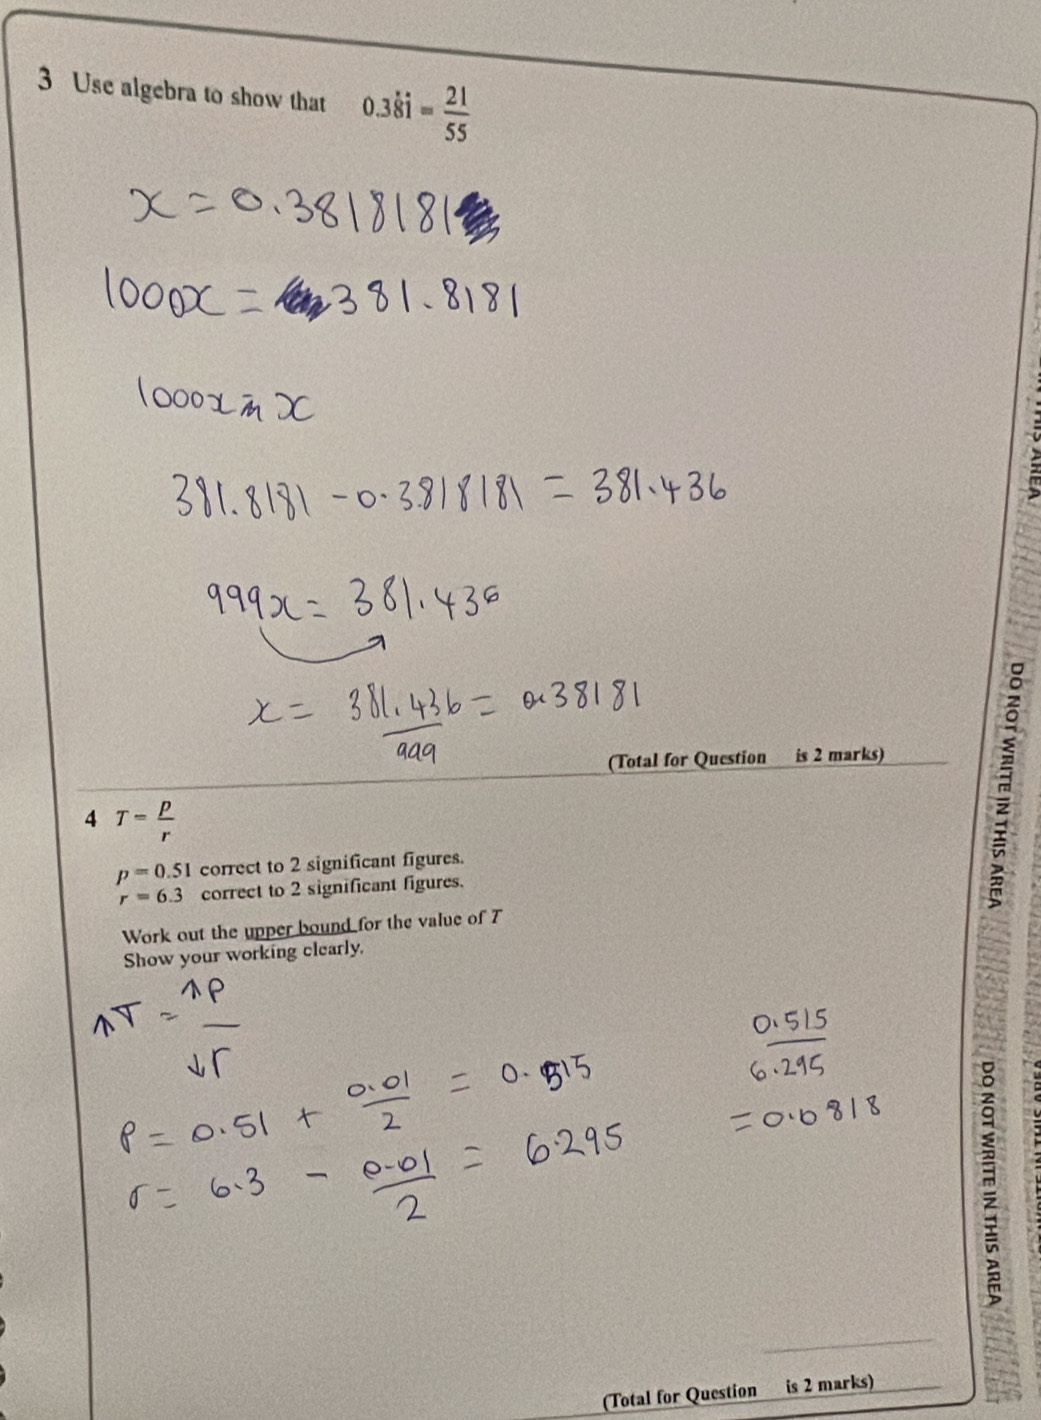 3 Use algebra to show that 0.38̇1̇ = 21/55
x = 0.3818181
1000x = 381.8181
1000x - x
381.8181 - 0.3818181 = 381.436
999x = 381.436
x = 381.436/999 = 0.38181
(Total for Question is 2 marks)
4 T = p/r
p = 0.51 correct to 2 significant figures.
r = 6.3 correct to 2 significant figures.
Work out the upper bound for the value of T
Show your working clearly.
↑T = ↑P/↓r
P = 0.51 + 0.01/2 = 0.515
r = 6.3 - 0.01/2 = 6.295
0.515/6.295
= 0.0818
(Total for Question is 2 marks)
DO NOT WRITE IN THIS AREA
DO NOT WRITE IN THIS AREA
THIS AREA